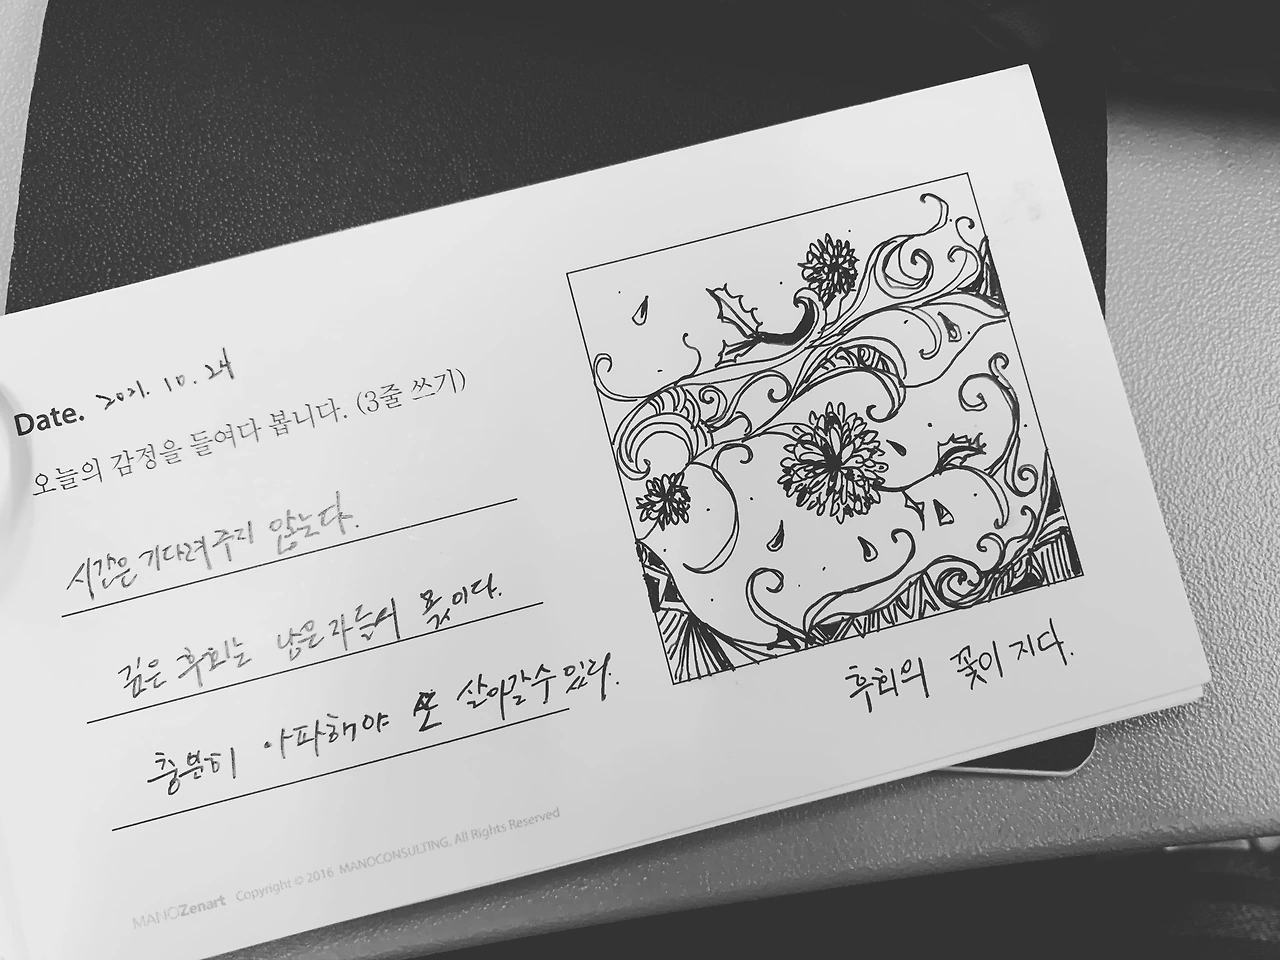 Date. 2021. 10. 24
오늘의 감정을 들여다 봅니다. (3줄 쓰기)
시간은 기다려주지 않는다.
깊은 후회는 남은자들의 몫이다.
충분히 아파해야 또 살아갈수있다.
후회의 꽃이 지다.
MANOZenart Copyright © 2016 MANOCONSULTING, All Rights Reserved